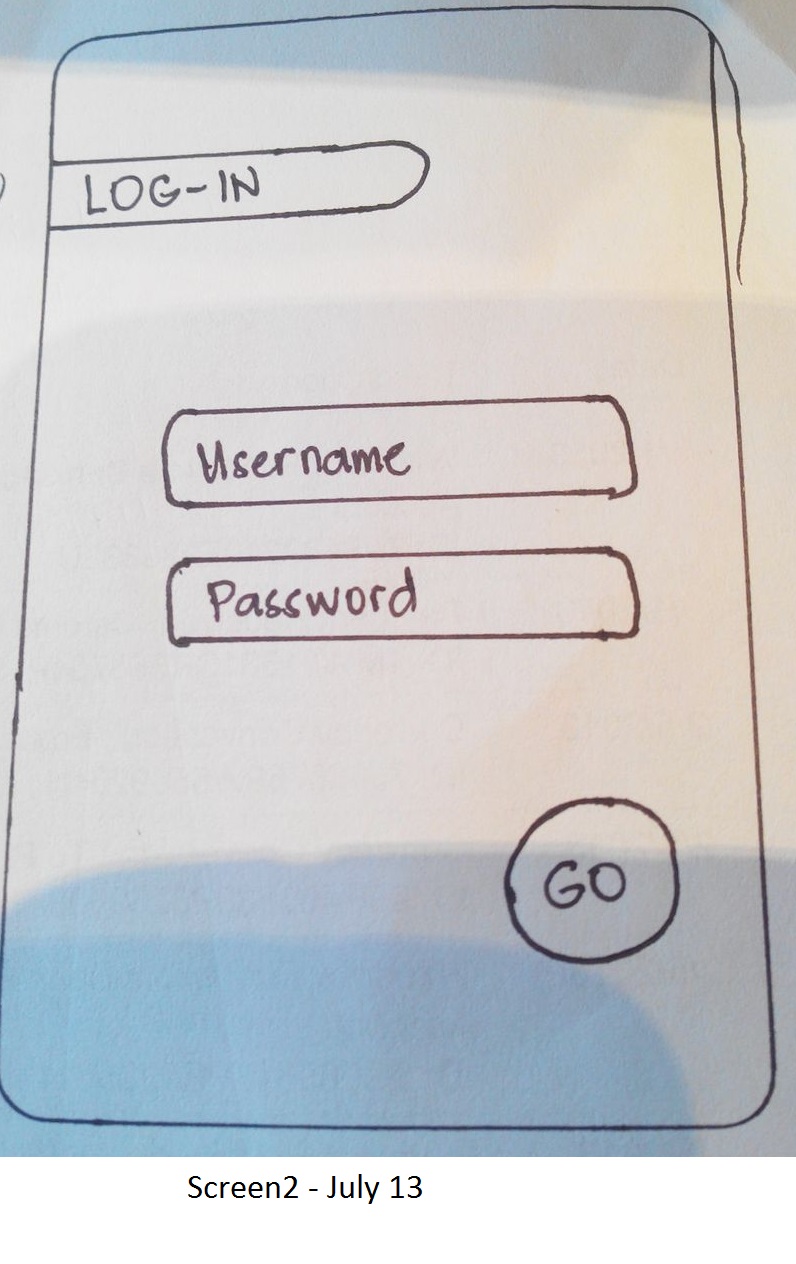 LOG-IN
Username
Password
GO
Screen2 - July 13